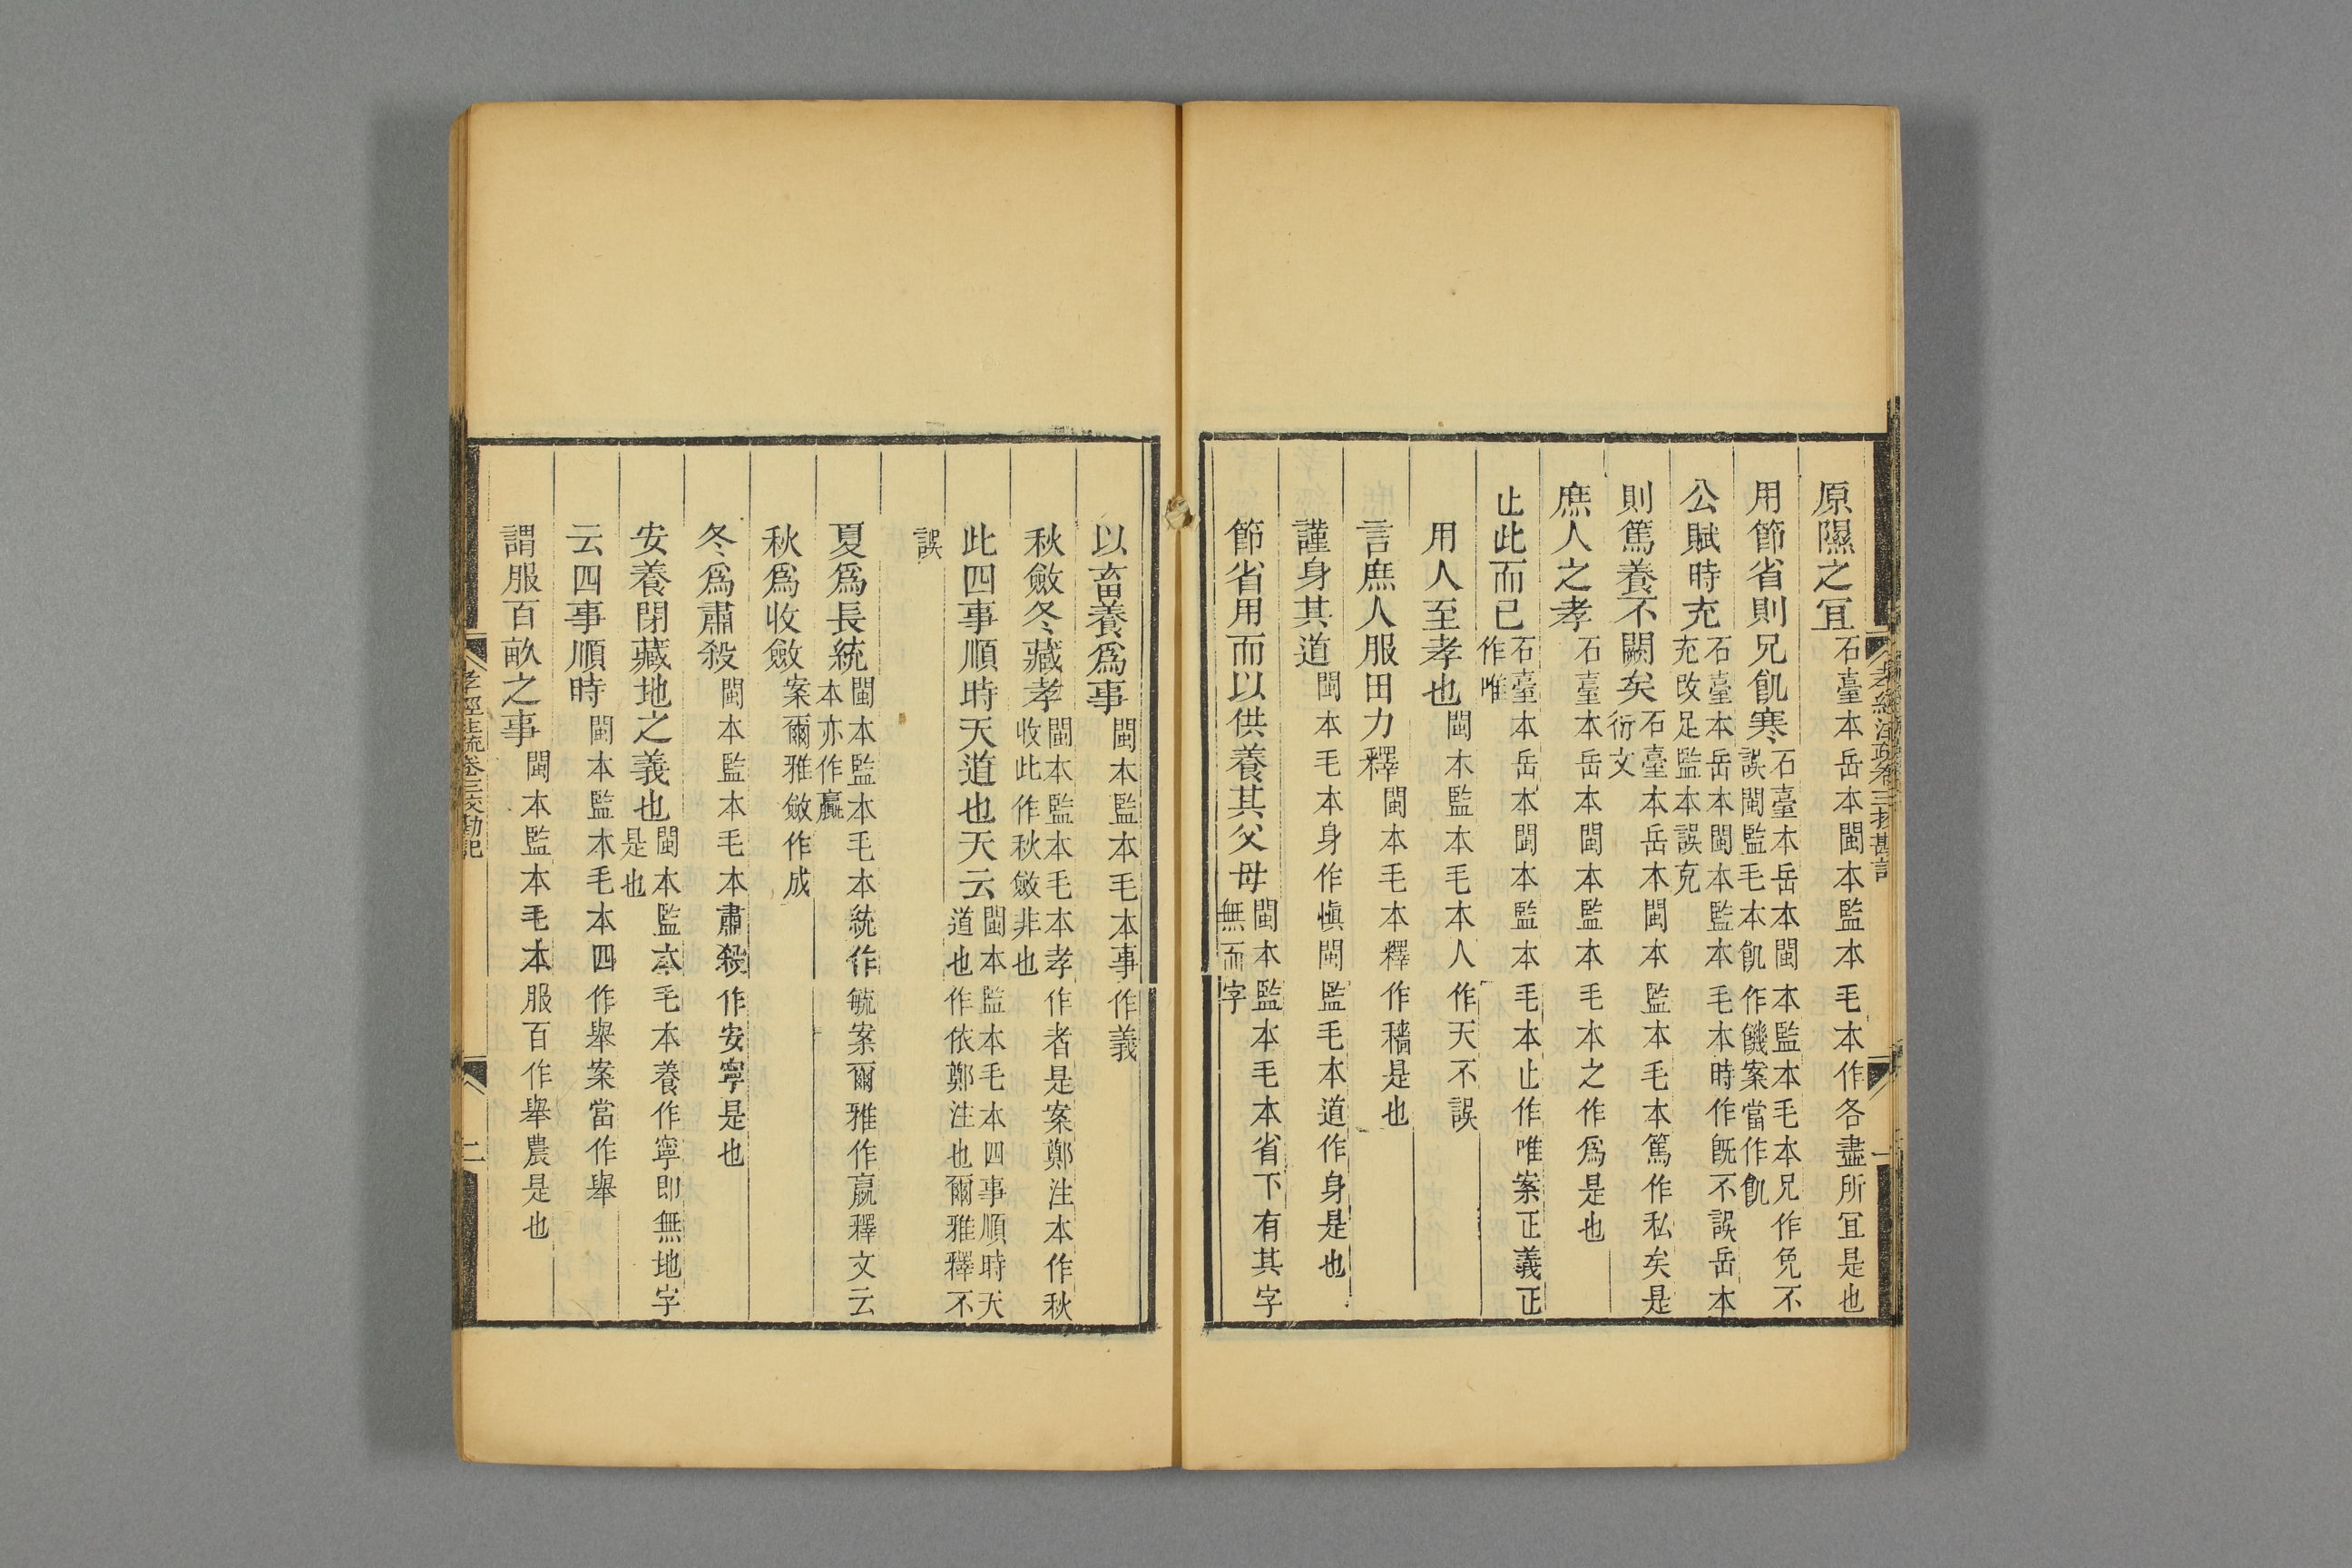 原隰之宜石臺本岳本閩本監本毛本作各盡所宜是也
用節省則兄飢寒石臺本岳本閩本監本毛本兄作免不誤閩監毛本飢作饑案當作飢
公賦時充石臺本岳本閩本監本毛本時作旣不誤岳本充改足監本誤克
則篤養不闕矣石臺本岳本閩本監本毛本篤作私矣是衍文
庶人之孝石臺本岳本閩本監本毛本之作爲是也
止此而已石臺本岳本閩本監本毛本止作唯案正義正作唯
用人至孝也閩本監本毛本人作天不誤
言庶人服田力釋閩本毛本釋作穡是也
謹身其道閩本毛本身作愼閩監毛本道作身是也
節省用而以供養其父母閩本監本毛本省下有其字無而字
以畜養爲事閩本監本毛本事作義
秋斂冬藏孝閩本監本毛本孝作者是案鄭注本作秋收此作秋斂非也
此四事順時天道也天云閩本監本毛本四事順時天道也作依鄭注也爾雅釋不
誤
夏爲長統閩本監本毛本統作毓案爾雅作嬴釋文云本亦作贏
秋爲收斂案爾雅斂作成
冬爲肅殺閩本監本毛本肅殺作安寧是也
安養閉藏地之義也閩本監本毛本養作寧即無地字是也
云四事順時閩本監本毛本四作舉案當作舉
謂服百畝之事閩本監本毛本服百作舉農是也
孝經注疏卷三校勘記
二